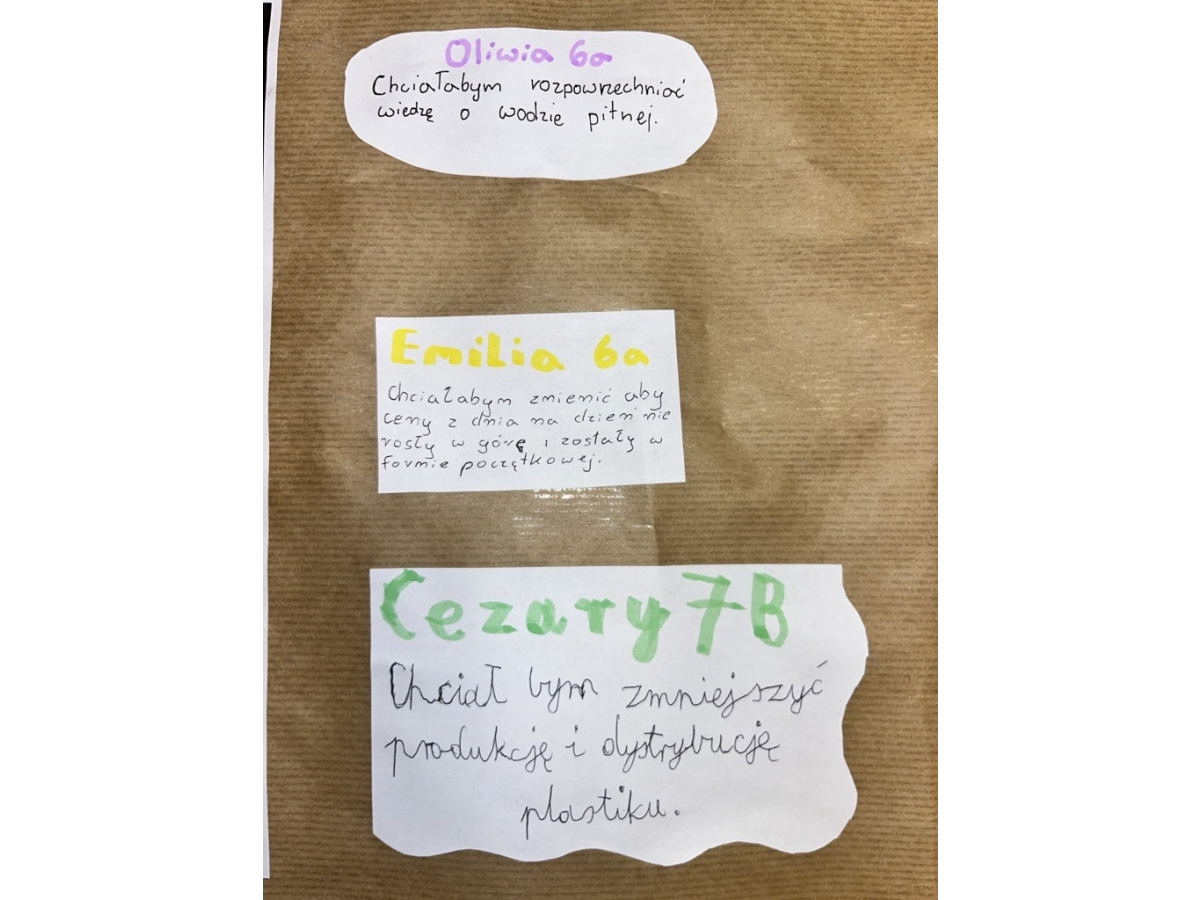 Oliwia 6a
Chciałabym rozpowrzechniać
wiedzę o wodzie pitnej.
Emilia 6a
Chciałabym zmienić aby
ceny z dnia na dzień nie
rosły w górę i zostały w
formie początkowej.
Cezary 7B
Chciał bym zmniejszyć
produkcję i dystrybucję
plastiku.